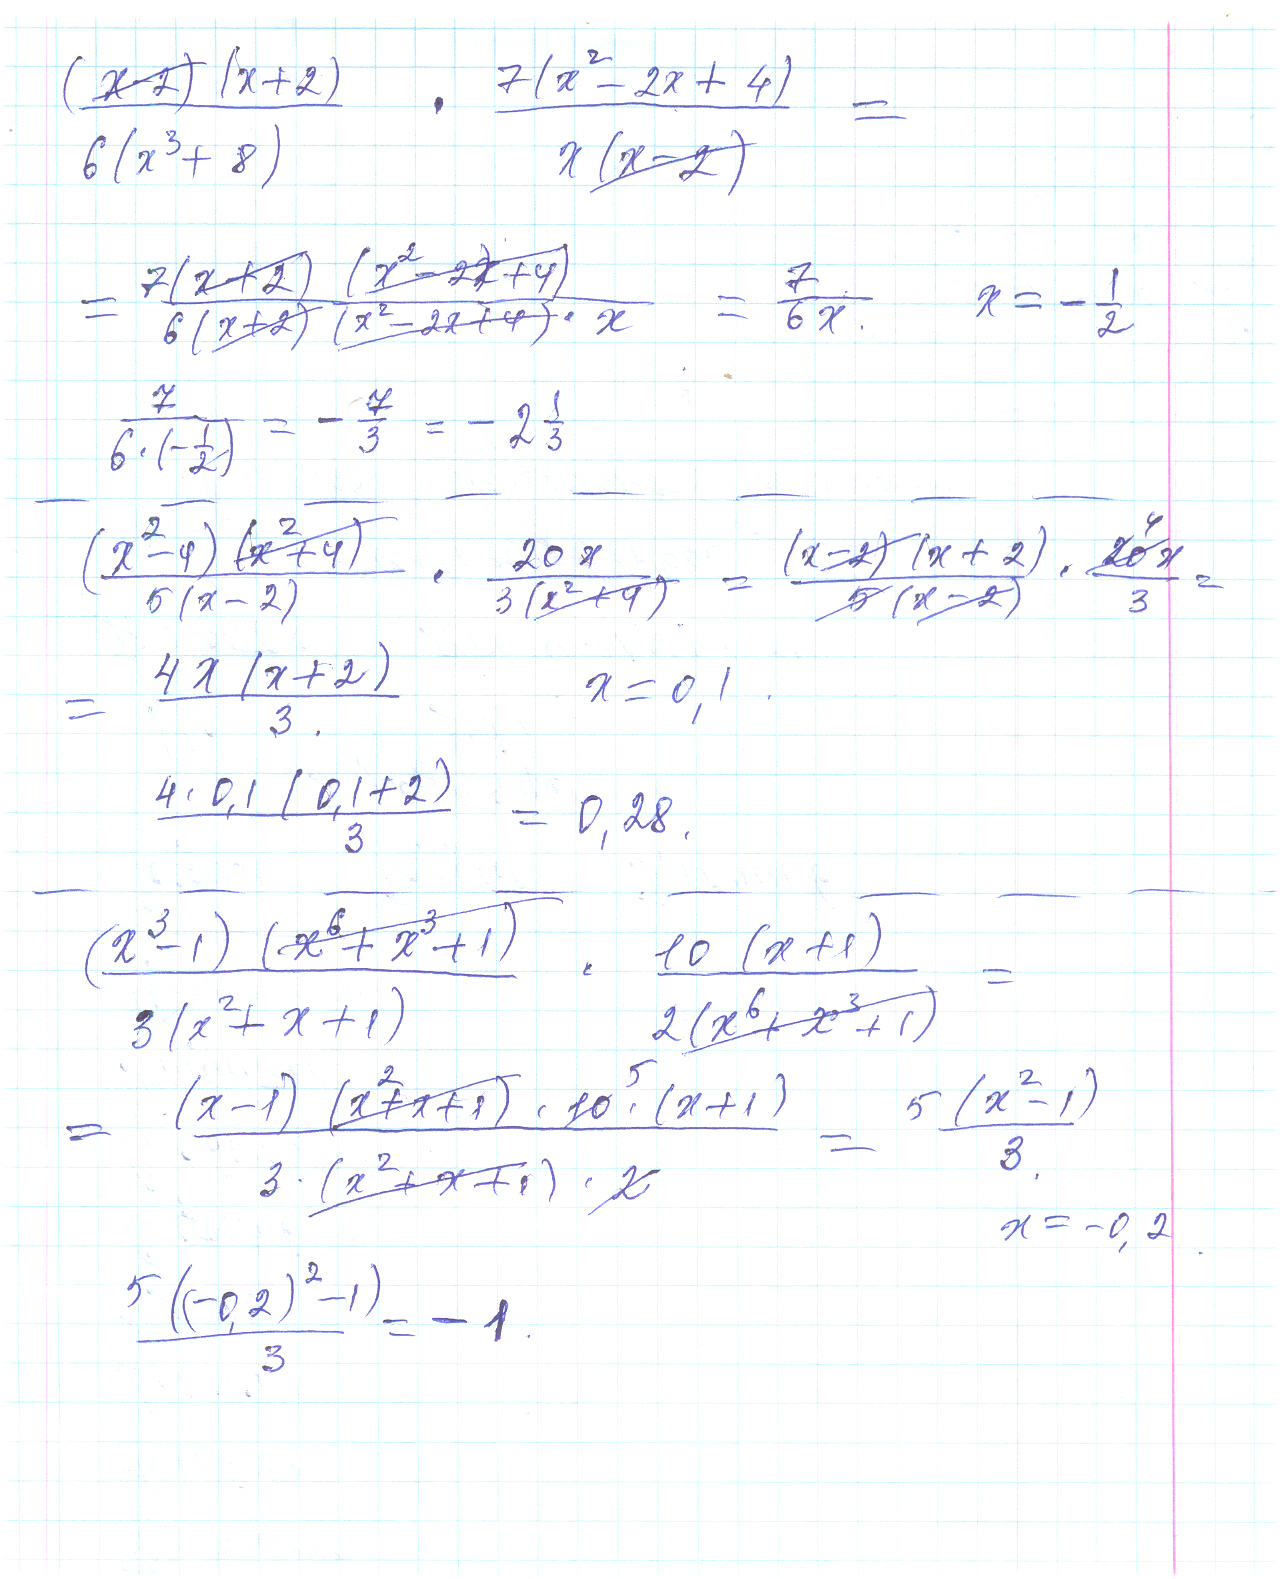 (x-2)(x+2)/6(x³+8) · 7(x²-2x+4)/x(x-2) =
= 7(x+2)(x²-2x+4)/6(x+2)(x²-2x+4)·x = 7/6x. x = -1/2
7/6·(-1/2) = -7/3 = -2 1/3
(x²-4)(x²+4)/5(x-2) · 20x/3(x²+4) = (x-2)(x+2)/5(x-2) · 20⁴x/3 =
= 4x(x+2)/3. x = 0,1.
4·0,1(0,1+2)/3 = 0,28.
(x³-1)(x⁶+x³+1)/3(x²+x+1) · 10(x+1)/2(x⁶+x³+1) =
= (x-1)(x²+x+1)·10⁵·(x+1)/3·(x²+x+1)·2 = 5(x²-1)/3.
x = -0,2.
5((-0,2)²-1)/3 = -1.